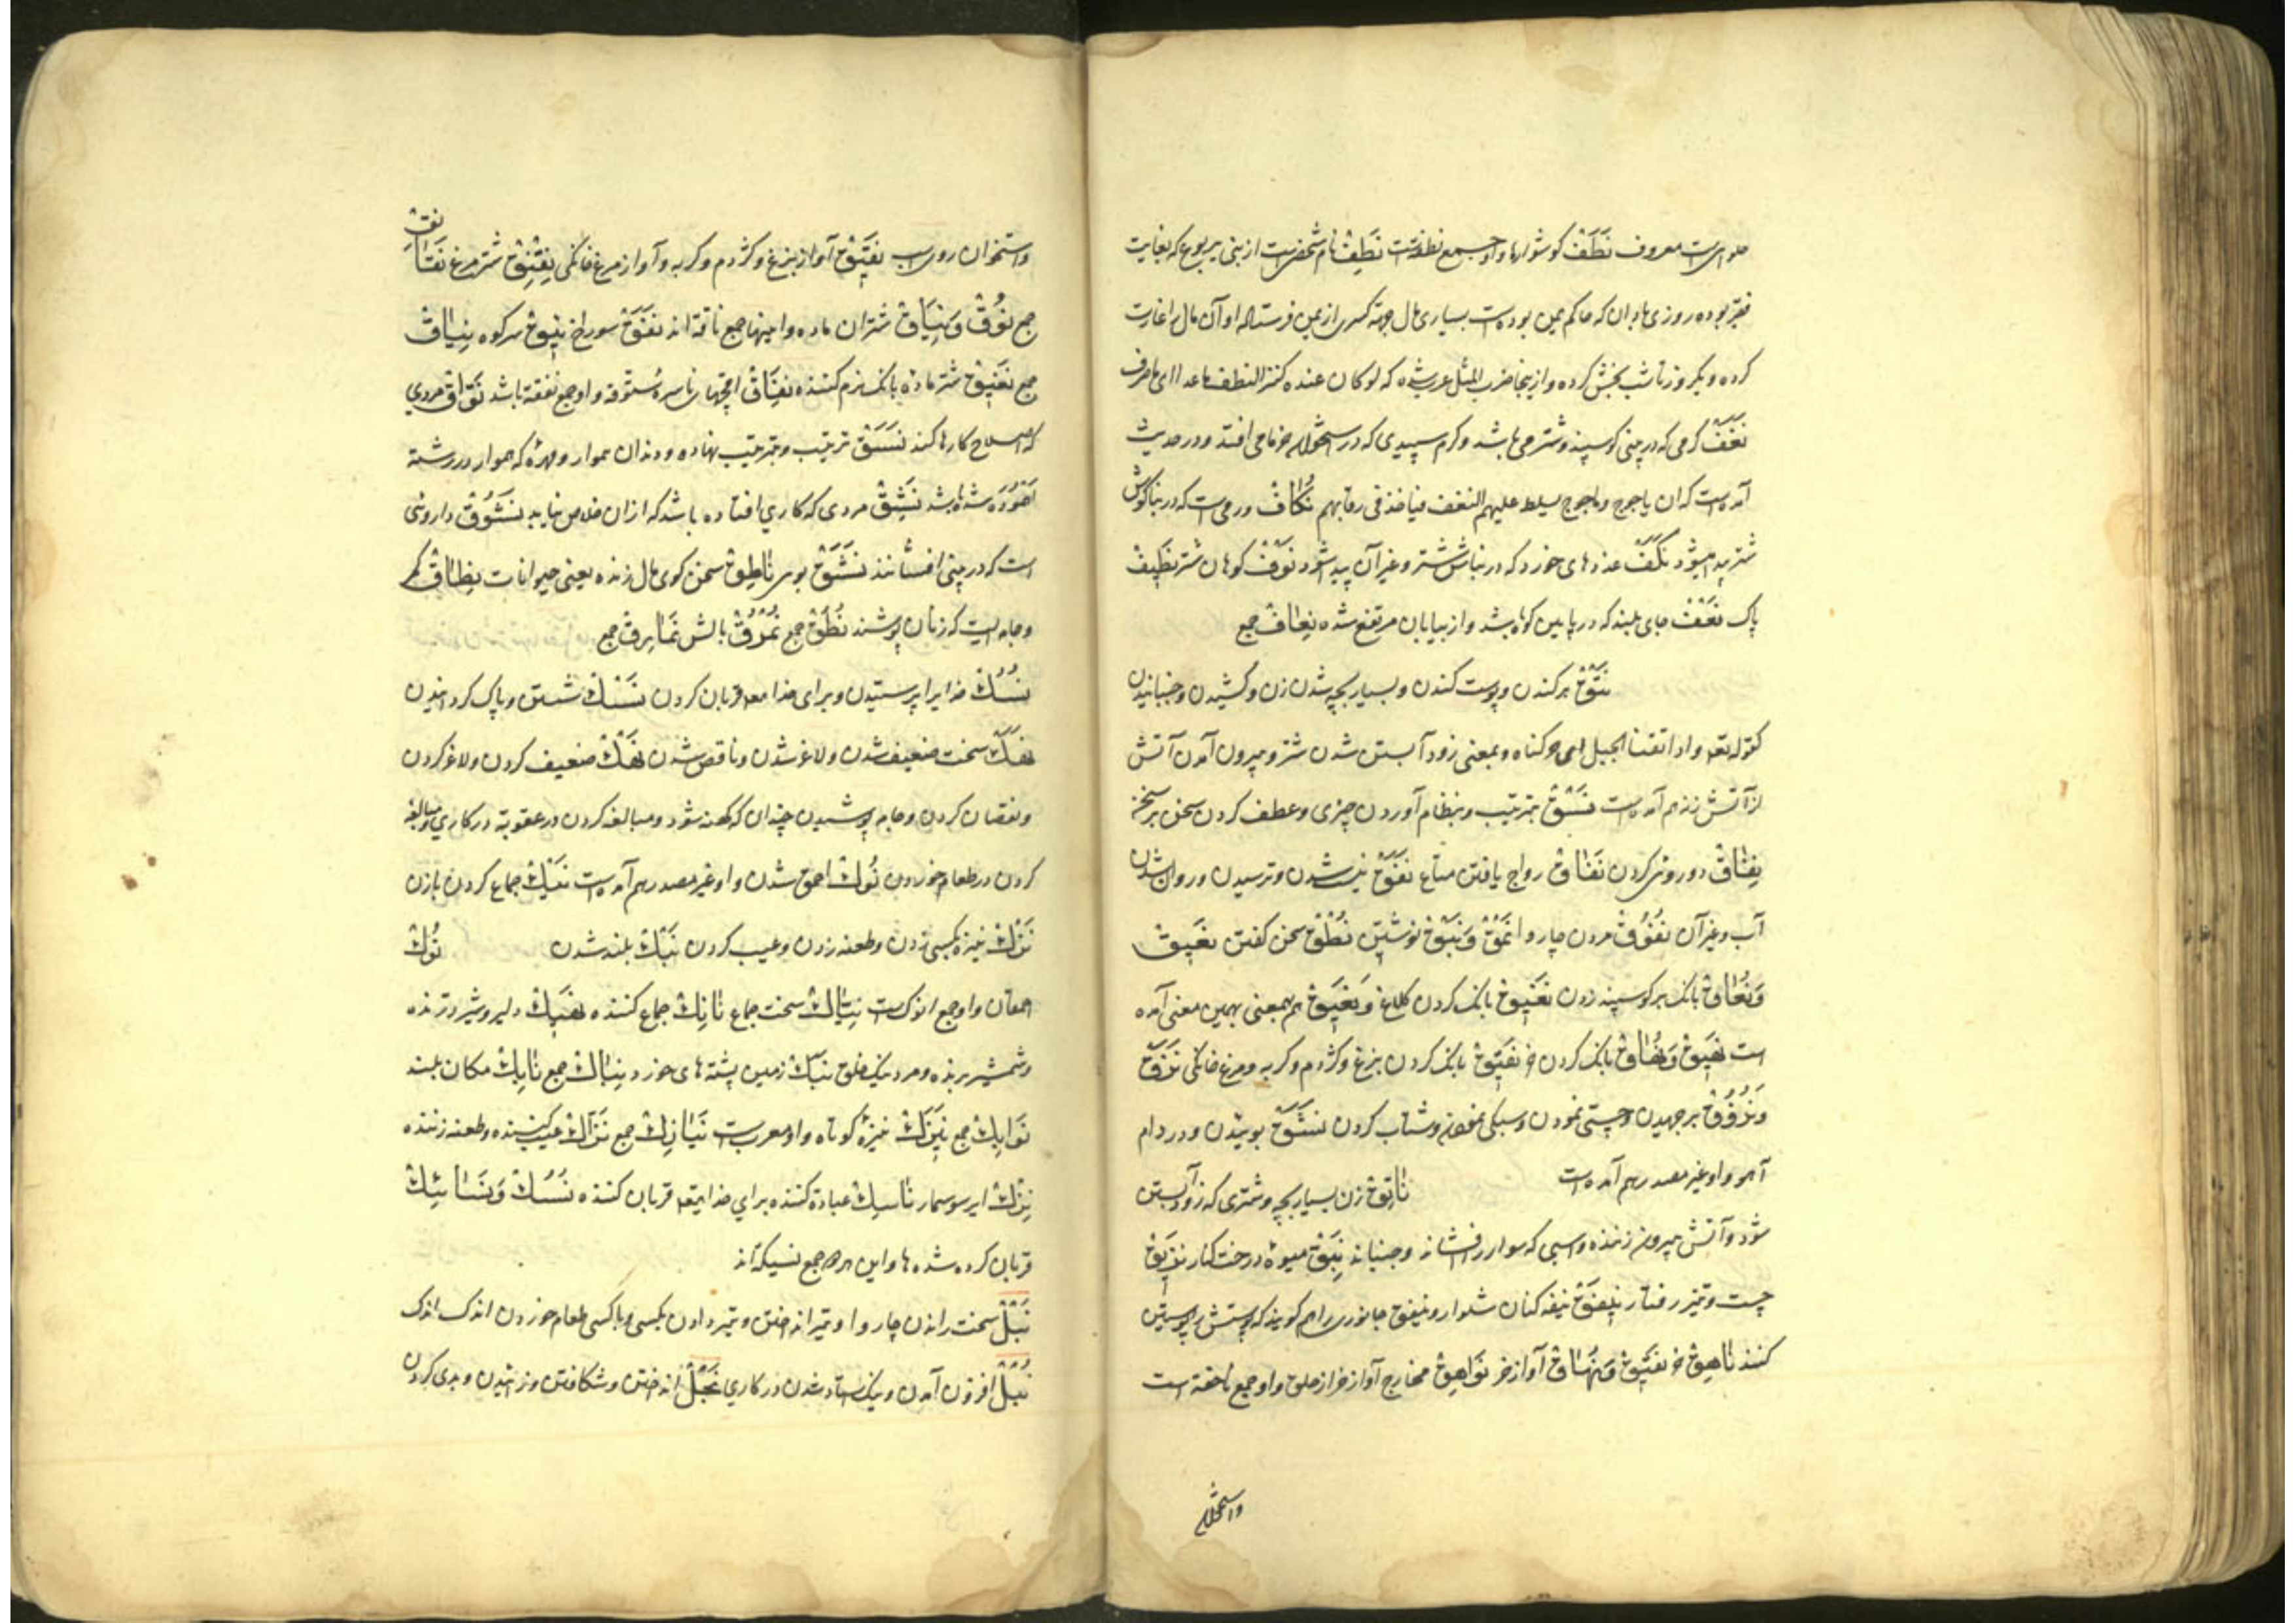 حلوای است معروف نَطَفْ کوشوارها واو جمع نطفتست نَطِفْ نام شخصیست از بنی یربوع که بغایت
فقیر بوده روزی باذان که حاکم یمن بوده است بسیاری مال جهة کسری از یمن فرستاده او آن مال را غارت
کرده و یکروز تا شب بخش کرده و از ینجا ضرب المثل عرب شده که لو کان عنده کنز النطف ما عدا ای ما صرف
نَغَفْ کرمی که در بینی کوسپند و شتر می باشد و کرم سپیدی که در استخوان خرما می افتد و در حدیث
آمده است که ان یاجوج و ماجوج یسلط علیهم النغف فیاخذ فی رقابهم نُکَافْ ورمی است که در بناکوش
شتر پیدا میشود نَکَفْ غده های خورد که در بناکوش شتر و غیر آن پیدا شود نَوْفْ کوهان شتر نَظِیفْ
پاک نَعْفْ جای بلند که در پایین کوه باشد و از بیابان مرتفع شده نِعَافْ جمع
نَتْقْ برکندن و پوست کندن و بسیار بچه شدن زن و کشیدن و جنبانیدن
کقوله تعه واذ نتقنا الجبل ای حرکناه و بمعنی زود آبستن شدن شتر و بیرون آمدن آتش
از آتش زنه هم آمده است نَسْقْ بترتیب و بنظام آوردن چیزی و عطف کردن سخن بر سخن
نِفَاقْ دو رویی کردن نَفَاقْ رواج یافتن متاع نَفَقْ نیست شدن و ترسیدن و روان شدن
آب و غیر آن نُفُوقْ مردن چاروا نَمْقْ وَنَبْقْ نوشتن نُطْقْ سخن کفتن نَعِیقْ
وَنُعَاقْ بانک بر کوسپند زدن نَغِیقْ بانک کردن کلاغ وَنَعِیقْ هم بمعنی بهمین معنی آمده
است نَهِیقْ وَنُهَاقْ بانک کردن خر نَقِیقْ بانک کردن بزغ و کژدم و کربه و مرغ خانکی نَزَقْ
وَنُزُوقْ برجهیدن و چستی نمودن و سبکی نمودن و شتاب کردن نَشَقْ بوییدن و در دام
آهو واو غیر مصدر هم آمده است نَاتِقْ زن بسیار بچه و شتری که زود آبستن
شود و آتش بیرون زننده و اسبی که سوار را فشاند و جنباند نَبِقْ میوهٔ درخت کنار نَزِیقْ
چست و تیز رفتار نَیْفَقْ نیفه کنان شلوار و نیفق جانوری را هم کویند که پوستش را پوستین
کنند نَاهِقْ خر نَهِیقْ وَنُهَاقْ آواز خر نَوَاهِقْ مخارج آواز خر از حلق واو جمع ناهقه است
واستخوان
واستخوان روی اسب نَقِیقْ آواز بزغ و کژدم و کربه و آواز مرغ خانکی نِقْنِقْ شتر مرغ نَقَانِقْ
جمع نُوقْ وَنِیَاقْ شتران ماده و اینها جمع ناقه اند نَفَقْ سوراخ نِیقْ سر کوه نِیَاقْ
جمع نَغِیقْ شتر ماده بانک نرم کننده نِفَاقْ واو جمع نفقه باشد نَوَّاقْ مردی
که اصلاح کارها کند نَسَقْ ترتیب و بترتیب نهاده و دندان هموار و مهره که هموار در رشته
شده باشد نَشِقْ مردی که کاری افتاده باشد که از ان خلاص نیابد نَشُوقْ داروئی
است که در بینی افشانند نَشَقْ بوی نَاطِقْ سخن کوی مال زنده یعنی حیوانات نِطَاقْ کمر
و جامه ایست که زنان پوشند نُطُقْ جمع نُمْرُقْ بالش نَمَارِقْ جمع
نُسُكْ خدایرا پرستیدن و برای خدا تعه قربان کردن نَسْكْ شستن و پاک کردانیدن
نَهَكْ سخت ضعیف شدن و لاغر شدن و ناقص شدن نَهْكْ ضعیف کردن و لاغر کردن
و نقصان کردن و جامه پوشیدن چندان که کهنه شود و مبالغه کردن در عقوبة در کاری و مبالغه
کردن در طعام خوردن نُوكْ احمق شدن واو غیر مصدر هم آمده است نَیْكْ جماع کردن با زن
نَزْكْ نیزه بکسی زدن و طعنه زدن و عیب کردن نَبْكْ بلند شدن نُوكْ
احمقان واو جمع انوک است نَیَّاكْ سخت جماع نَایِكْ جماع کننده نَهِیكْ دلیر و شیر درنده
و شمشیر برنده و مرد نیک خلق نَبَكْ زمین پشته های خورد نِبَاكْ جمع نَابِكْ مکان بلند
نَوَابِكْ جمع نَیْزَكْ نیزهٔ کوتاه واو معرب است نَیَازِكْ جمع نَزَّاكْ عیب کننده و طعنه زننده
نِزْكْ ایر سوسمار نَاسِكْ عبادة کننده برای خدا تعه و قربان کننده نُسُكْ وَنَسَائِكْ
قربان کرده شده ها و این هر دو جمع نسیکه اند
نَبْلْ سخت راندن چاروا و تیر انداختن و تیر دادن بکسی و با کسی طعام خوردن اندک اندک
نُبْلْ افزون آمدن و نیک استاد شدن در کاری نَجْلْ انداختن و شکافتن و زائیدن و بدی کردن